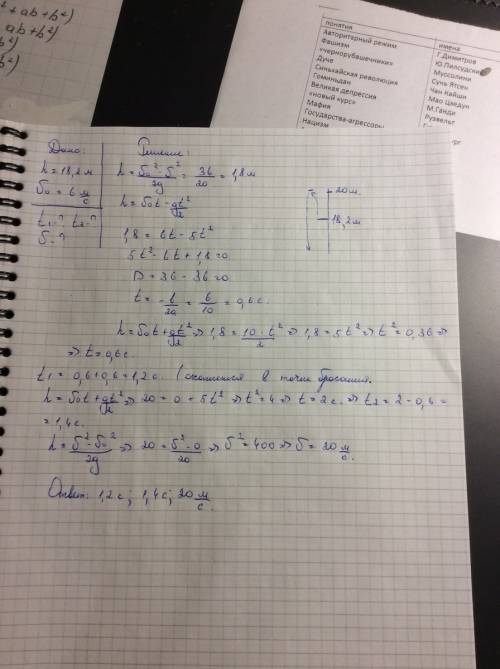 ² + ab + b²)
ab + b²)
b²)
b²)
понятия
имена
Авторитарный режим
Г.Димитров
Фашизм
Ю.Пилсудский
«чернорубашечники»
Муссолини
Дуче
Сунь Ятсен
Синьхайская революция
Чан Кайши
Гоминьдан
Мао Цзедун
Великая депрессия
М.Ганди
«новый курс»
Рузвельт
Мафия
Государства-агрессоры
Нацизм
Дано:
h = 18,2 м
υ₀ = 6 м/с
t₁-? t₂-?
υ-?
Решение:
h = υ₀² - υ²/2g = 36/20 = 1,8 м
h = υ₀t - gt²/2
1,8 = 6t - 5t²
5t² - 6t + 1,8 = 0
D = 36 - 36 = 0
t = -b/2a = 6/10 = 0,6 с.
20 м.
18,2 м.
h = υ₀t + gt²/2 => 1,8 = 10·t²/2 => 1,8 = 5t² => t² = 0,36 =>
=> t = 0,6 с.
t₁ = 0,6 + 0,6 = 1,2 с. (окажется в точке бросания.
h = υ₀t + gt²/2 => 20 = 0 + 5t² => t² = 4 => t = 2 с. => t₂ = 2 - 0,6 =
= 1,4 с.
h = υ² - υ₀²/2g => 20 = υ² - 0/20 => υ² = 400 => υ = 20 м/с.
Ответ: 1,2 с; 1,4 с; 20 м/с.